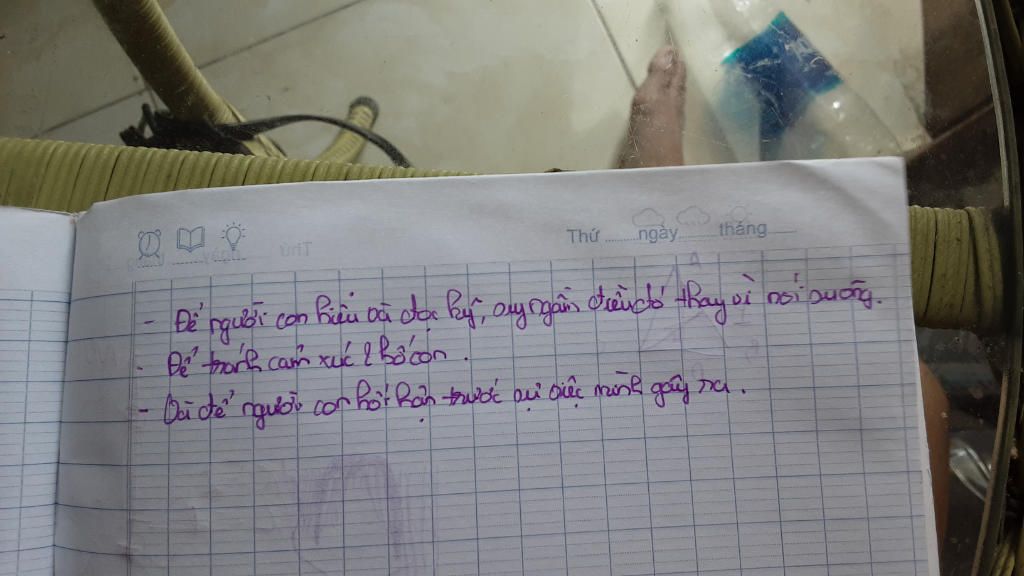 Thứ ........ngày........tháng........
- Để người con hiểu và đọc kỹ, suy ngẫm điều đó thay vì nói suông.
- Để tránh cảm xúc 2 bố con.
- Và để người con hối hận trước sự việc mình gây ra.